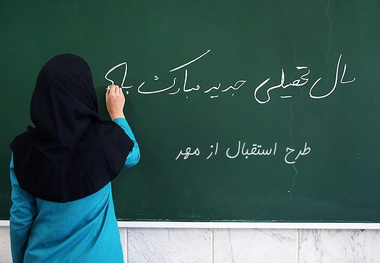 سال تحصیلی جدید مبارک با
طرح استقبال از مهر